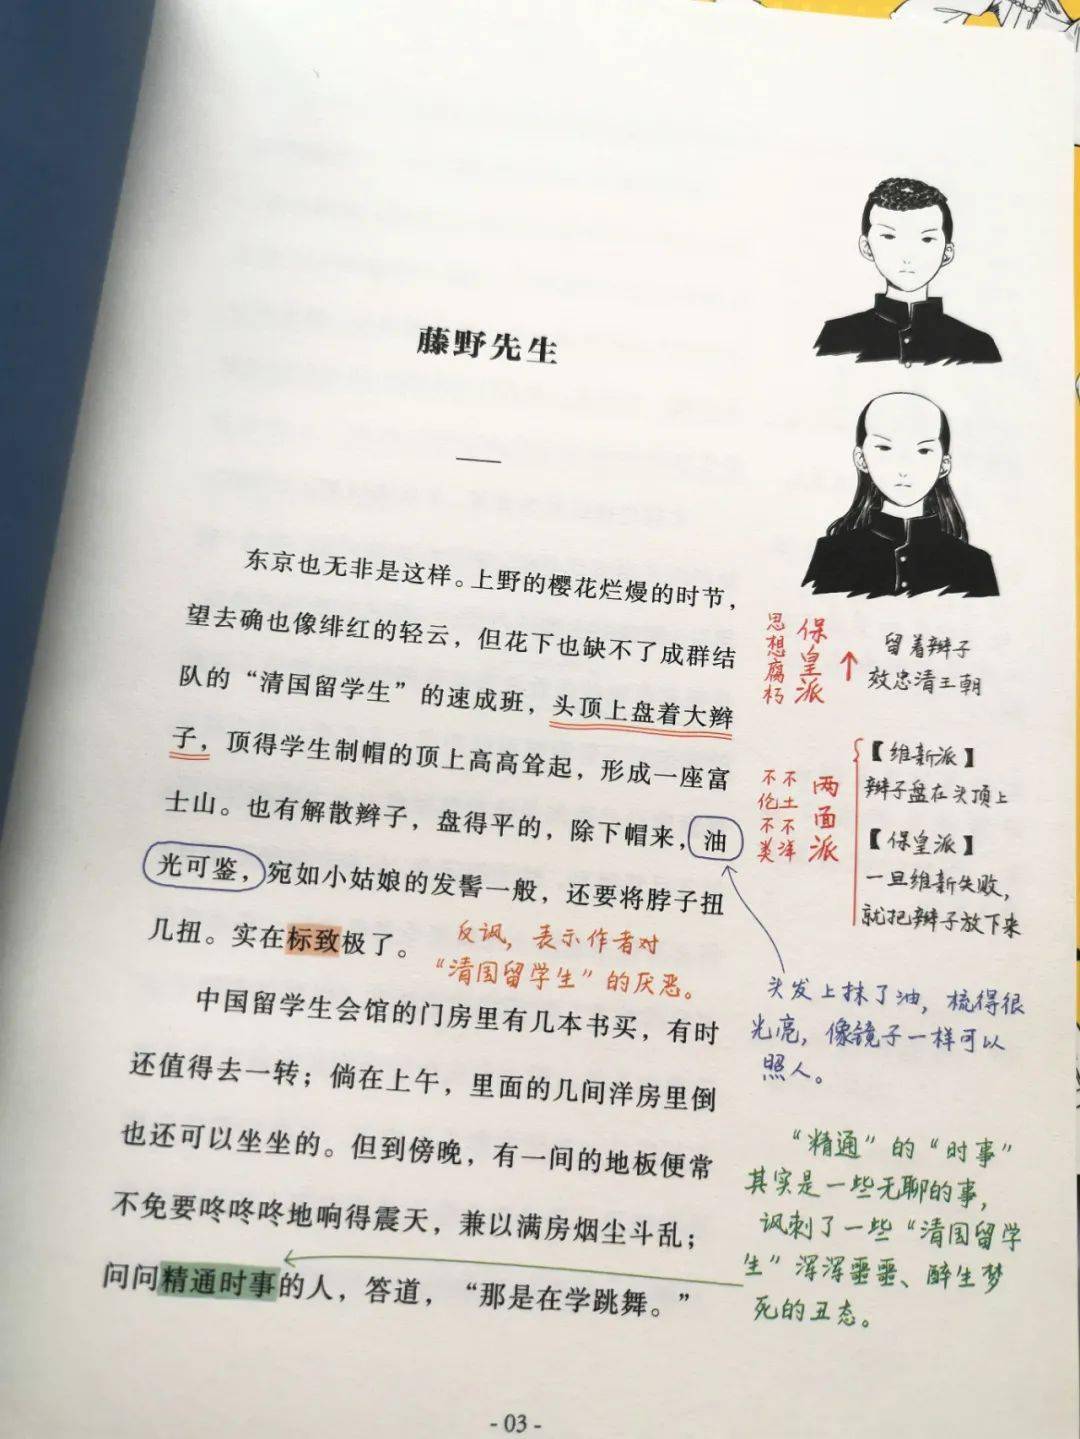 藤野先生
一
东京也无非是这样。上野的樱花烂熳的时节，
望去确也像绯红的轻云，但花下也缺不了成群结
队的“清国留学生”的速成班，头顶上盘着大辫
子，顶得学生制帽的顶上高高耸起，形成一座富
士山。也有解散辫子，盘得平的，除下帽来，油
光可鉴，宛如小姑娘的发髻一般，还要将脖子扭
几扭。实在标致极了。
反讽，表示作者对
“清国留学生”的厌恶。
中国留学生会馆的门房里有几本书买，有时
还值得去一转；倘在上午，里面的几间洋房里倒
也还可以坐坐的。但到傍晚，有一间的地板便常
不免要咚咚咚地响得震天，兼以满房烟尘斗乱；
问问精通时事的人，答道，“那是在学跳舞。”
保皇派
思想腐朽
留着辫子
效忠清王朝
两面派
不土不洋
不伦不类
【维新派】
辫子盘在头顶上
【保皇派】
一旦维新失败，
就把辫子放下来
头发上抹了油，梳得很
光亮，像镜子一样可以
照人。
“精通”的“时事”
其实是一些无聊的事，
讽刺了一些“清国留学
生”浑浑噩噩、醉生梦
死的丑态。
- 03 -